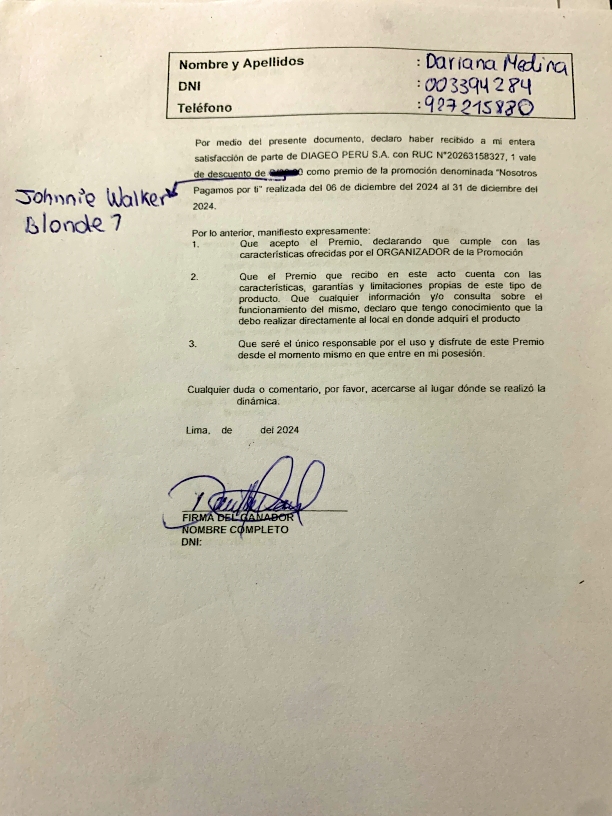 Nombre y Apellidos : Dariana Medina
DNI : 003394284
Teléfono : 927215880
Por medio del presente documento, declaro haber recibido a mi entera
satisfacción de parte de DIAGEO PERU S.A. con RUC N°20263158327, 1 vale
de descuento de como premio de la promoción denominada "Nosotros
Pagamos por ti" realizada del 06 de diciembre del 2024 al 31 de diciembre del
2024.
Johnnie Walker
Blonde 7
Por lo anterior, manifiesto expresamente:
1. Que acepto el Premio, declarando que cumple con las
características ofrecidas por el ORGANIZADOR de la Promoción
2. Que el Premio que recibo en este acto cuenta con las
características, garantías y limitaciones propias de este tipo de
producto. Que cualquier información y/o consulta sobre el
funcionamiento del mismo, declaro que tengo conocimiento que la
debo realizar directamente al local en donde adquirí el producto
3. Que seré el único responsable por el uso y disfrute de este Premio
desde el momento mismo en que entre en mi posesión.
Cualquier duda o comentario, por favor, acercarse al lugar dónde se realizó la
dinámica.
Lima, de del 2024
FIRMA DEL GANADOR
NOMBRE COMPLETO
DNI: